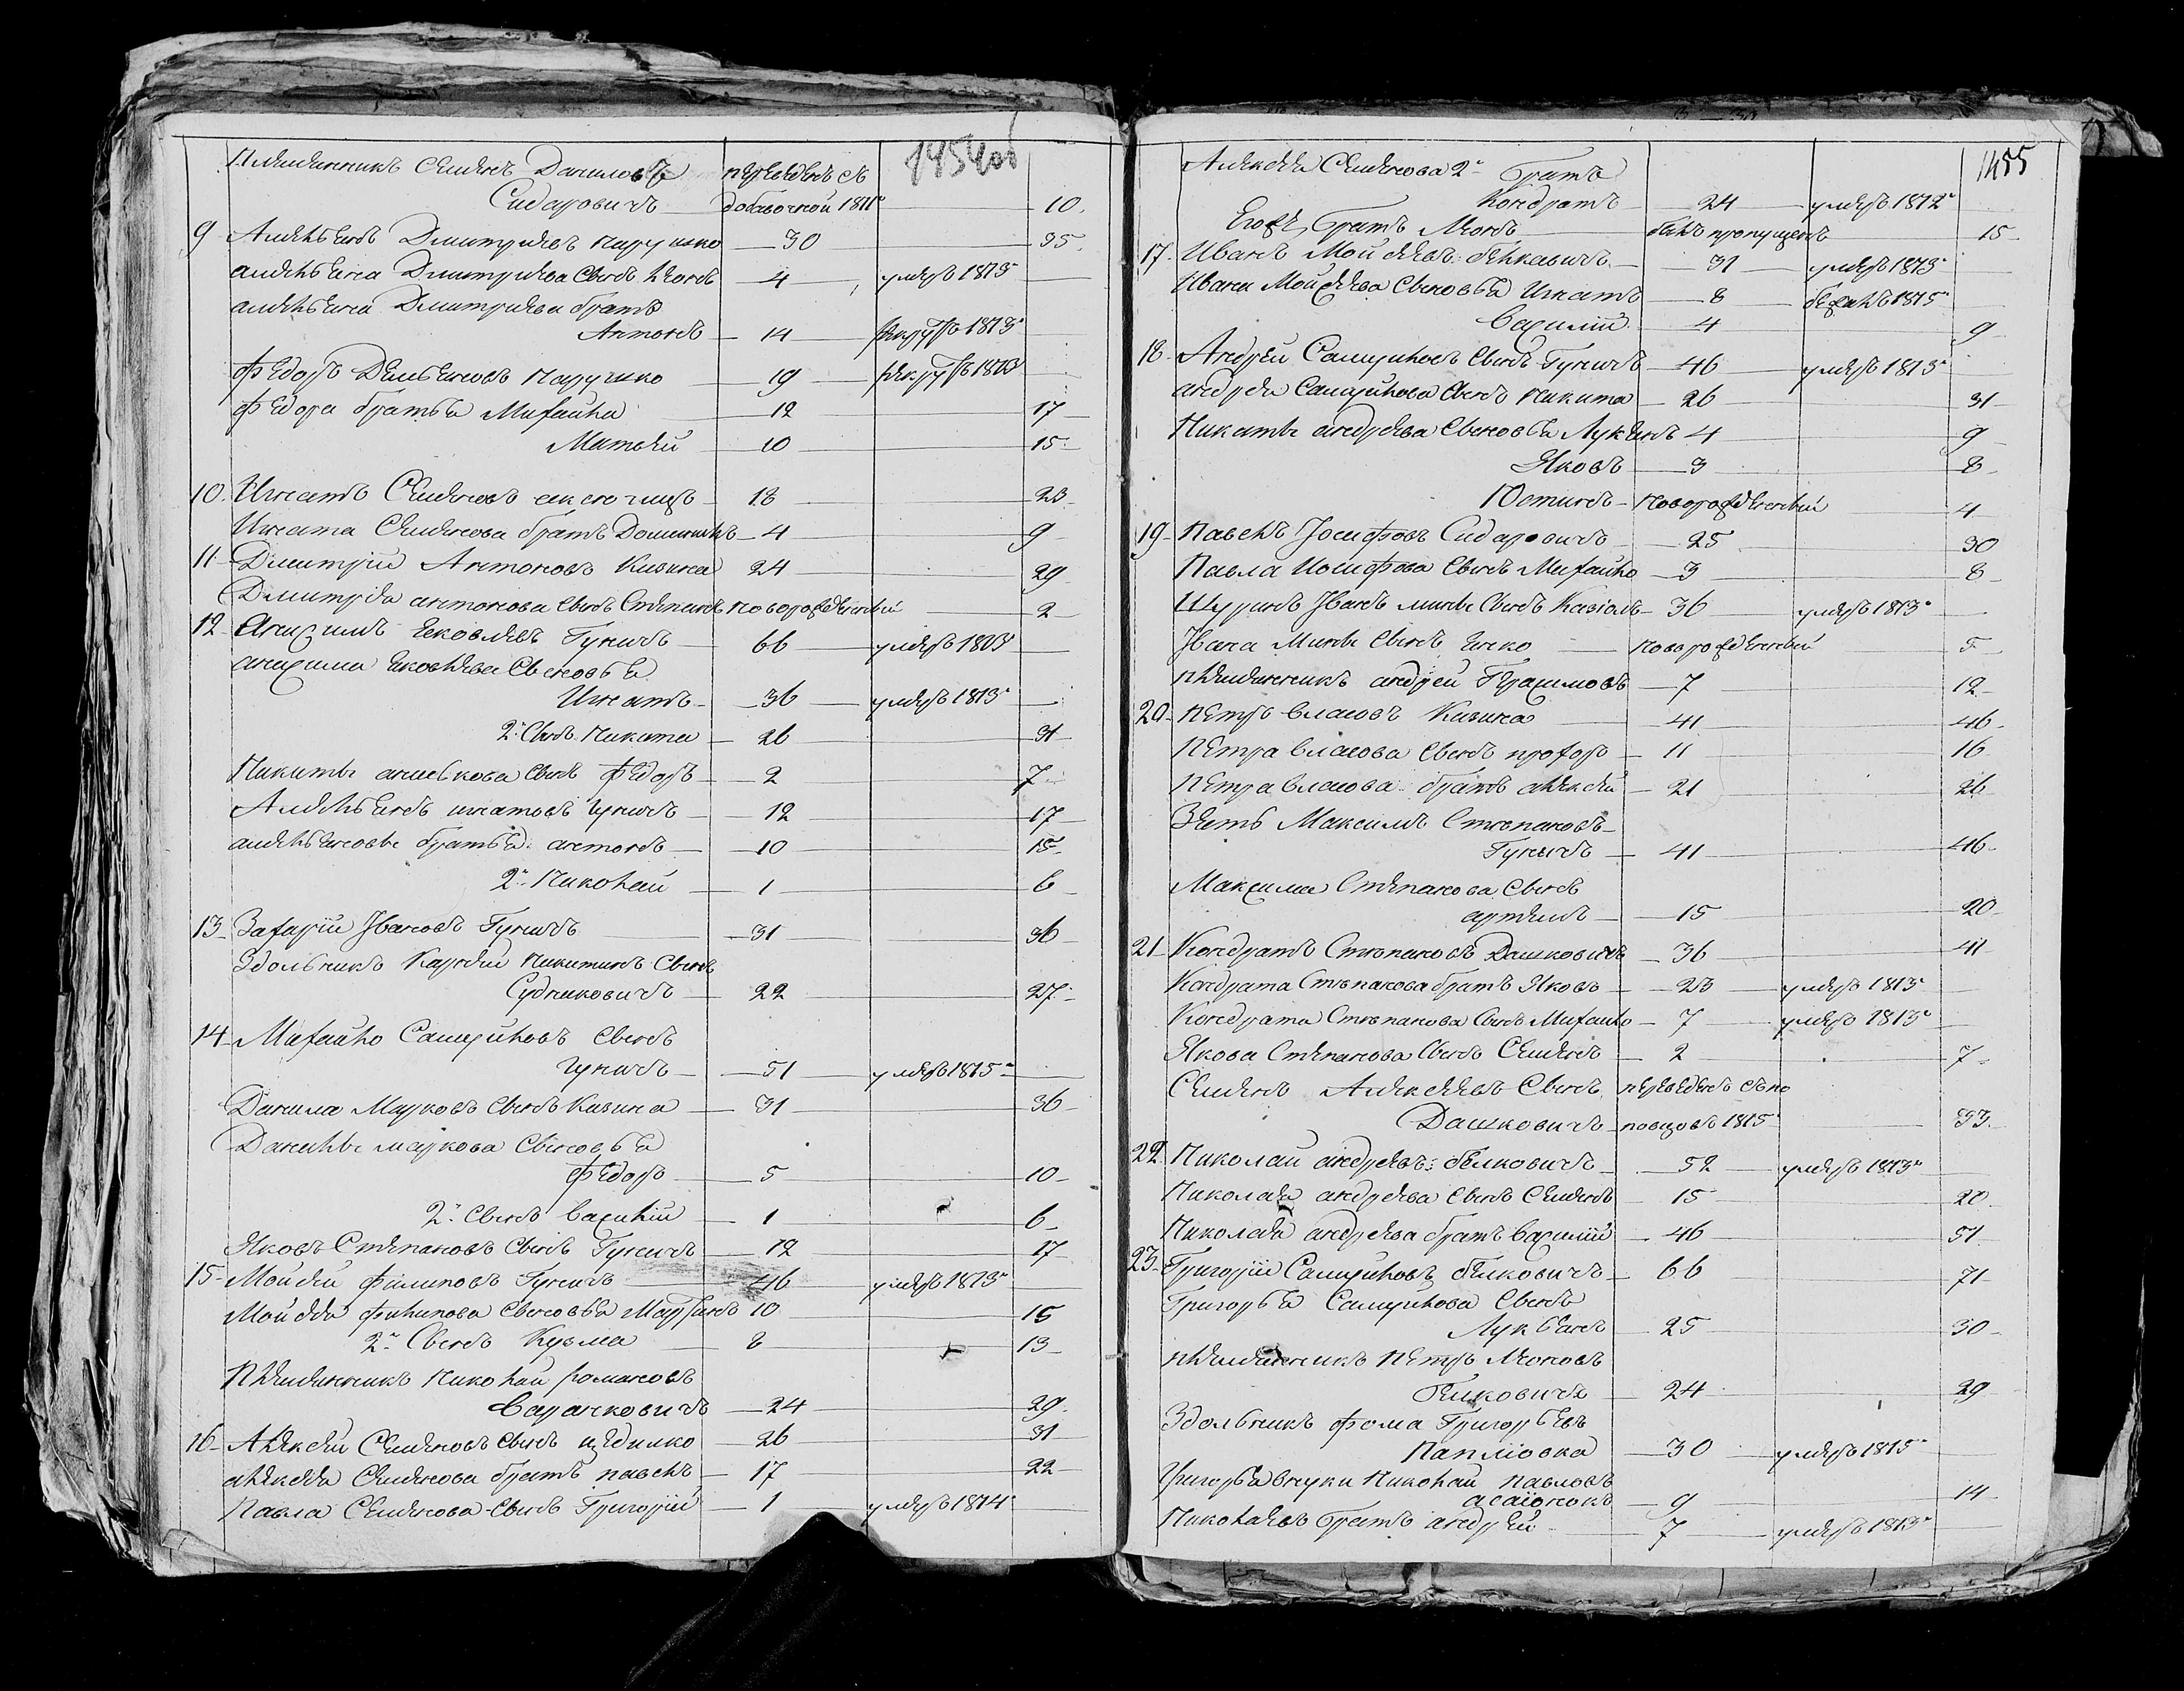 1454об
Племянникъ Семенъ Даниловъ переведенъ съ
Сидаровичъ добавочной 1811 10
9 Амельянъ Дмитріевъ Парушко 30 35
Амельяна Дмитріева сынъ Леонъ 4 умеръ 1813
Амельяна Дмитріева братъ
Антонъ 14 рекрутъ 1813
Федоръ Демьяновъ Парушко 19 рекрутъ 1813
Федора братья Михайла 12 17
Матвей 10 15
10 Игнатъ Семеновъ 18 23
Игната Семенова братъ Доминикъ 4 9
11 Дмитрій Антоновъ Кизина 24 29
Дмитрія Антонова сынъ Степанъ новорожденный 2
12 Анисимъ Яковлевъ Гуничъ 66 умеръ 1803
Анисима Яковлева сыновья
Игнатъ 36 умеръ 1813
2й сынъ Никита 26 31
Никиты сынъ Федоръ 2 7
Амельянъ Игнатовъ Гуничъ 12 17
Амельяновы братья Антонъ 10 15
2й Николай 1 6
13 Захарій Ивановъ Гуничъ 31 36
Здольникъ Карней Никитинъ сынъ
Судниковичъ 22 27
14 Михайло Самуйловъ сынъ
Гуничъ 51 умеръ 1815
Данила Марковъ сынъ Кизина 31 36
Данилы Маркова сыновья
Федоръ 5 10
2й сынъ Василій 1 6
Яковъ Степановъ сынъ Гуничъ 12 17
15 Мойсей Филиповъ Гуничъ 46 умеръ 1813
Мойсея Филипова сыновья Мартинъ 10 15
2й сынъ Кузьма 8 13
Племянникъ Николай Романовъ
24 29
16 Алексей Семеновъ сынъ 26 31
Алексея Семенова братъ Павелъ 17 22
Павла Семенова сынъ Григорій 1 умеръ 1814
1455
Алексея Семенова 2й братъ
Кондратъ 24 умеръ 1812
Егожъ братъ Леонъ былъ пропущенъ 15
17 Иванъ Мойсеевъ Белкавичъ 31 умеръ 1813
Ивана Мойсеева сыновья Игнатъ 8 бежалъ 1815
Василій 4 9
18 Андрей Самуйловъ сынъ Гуничъ 46 умеръ 1813
Андрея Самуйлова сынъ Никита 26 31
Никиты Андреева сыновья Лукьянъ 4 9
Яковъ 3 8
Юстинъ новорожденный 4
19 Павелъ Іосифовъ Сидаровичъ 25 30
Павла Иосифова сынъ Михайло 3 8
Шуринъ Иванъ Мины сынъ Казіолъ 36 умеръ 1813
Ивана Мины сынъ Янко новорожденный 5
Племянникъ Андрей Герасимовъ 7 12
20 Петръ Власовъ Кизина 41 46
Петра Власова сынъ Прохоръ 11 16
Петра Власова братъ Алексей 21 26
Зять Максимъ Степановъ
Гуничъ 41 46
Максима Степанова сынъ
Артемъ 15 20
21 Кондратъ Степановъ Дашковичъ 36 41
Кондрата Степанова братъ Яковъ 23 умеръ 1813
Кондрата Степанова сынъ Михайло 7 умеръ 1813
Якова Степанова сынъ Семенъ 2 7
Семенъ Алексеевъ сынъ переведенъ
Дашковичъ 1815 33
22 Николай Андреевъ Белковичъ 52 умеръ 1813
Николая Андреева сынъ Семенъ 15 20
Николая Андреева братъ Василій 46 51
23 Григорій Самуйловъ Белковичъ 66 71
Григорья Самуйлова сынъ
Лукьянъ 25 30
Племянникъ Петръ Леоновъ
Белковичъ 24 29
Здольникъ Фома Григорьевъ
30 умеръ 1815
Григорья внуки Николай Павловъ
9 14
Николаевъ братъ Андрей 7 умеръ 1813